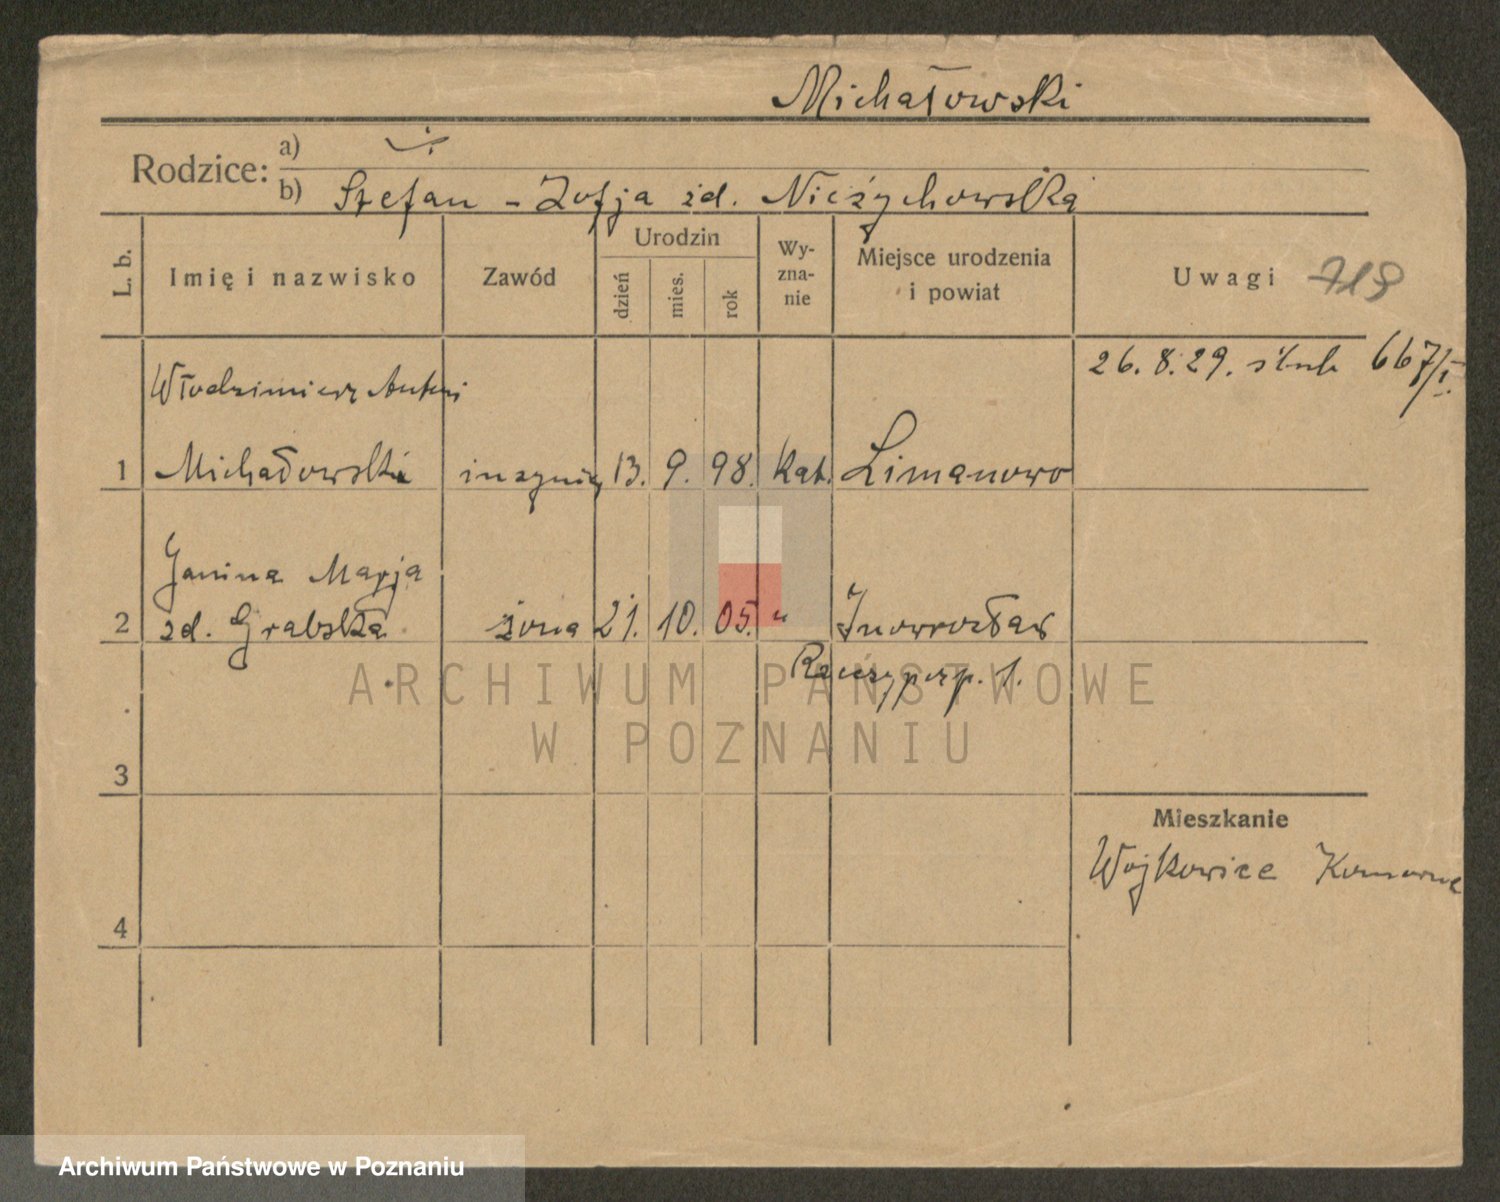 Michałowski
Rodzice: a) ·/.
b) Stefan - Zofja zd. Nieżychowska
L. b. Imię i nazwisko Zawód Urodzin dzień mies. rok Wy-zna-nie Miejsce urodzenia i powiat Uwagi 719
26. 8. 29. ślub 667/I.
Włodzimierz Antoni
1 Michałowski inżynier 13. 9. 98. kat. Limanowo
Janina Marja
2 zd. Grabska żona 21. 10. 05. " Inowrocław
Rzeczyposp. 1.
3
Mieszkanie
Wojkowice Komorne
4
ARCHIWUM PAŃSTWOWE
W POZNANIU
Archiwum Państwowe w Poznaniu